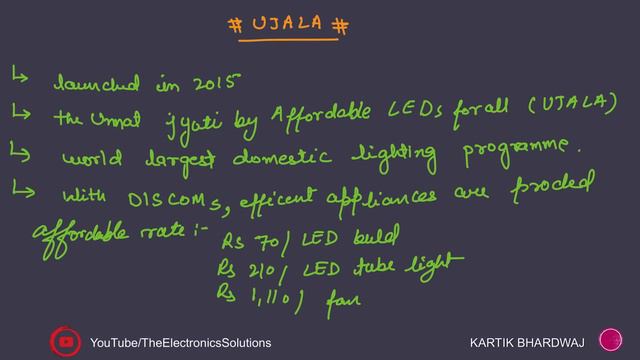 # UJALA #
↳ launched in 2015
↳ the Unnat jyoti by Affordable LEDs for all (UJALA)
↳ world largest domestic lighting programme.
↳ With DISCOMs, efficent appliances are proded
affordable rate :-
Rs 70/ LED buld
Rs 210/ LED tube light
Rs 1,110/ fan
YouTube/TheElectronicsSolutions
KARTIK BHARDWAJ